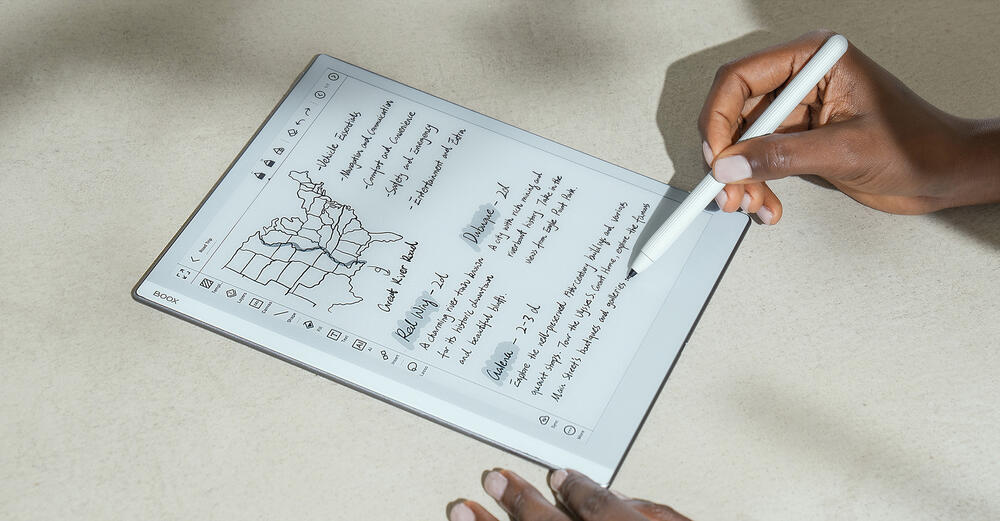 BOOX
Road Trip
Great River Road
-Vehicle Essentials
-Navigation and Communication
-Comfort and Convenience
-Safety and Emergency
-Entertainment and Extra
Red Wing - 2d
A charming river town known
for its historic downtown
and beautiful bluffs.
Dubuque - 2d
A city with rich mining and
riverboat history. Take in the
views from Eagle Point Park.
Galena - 2-3 d
Explore the well-preserved 19th century buildings and various
quaint shops. Tour the Ulysses S. Grant Home, explore the famous
Main Street's boutiques and galleries
Layers
Fill
Text
AI
Insert
Lasso
Sync
More